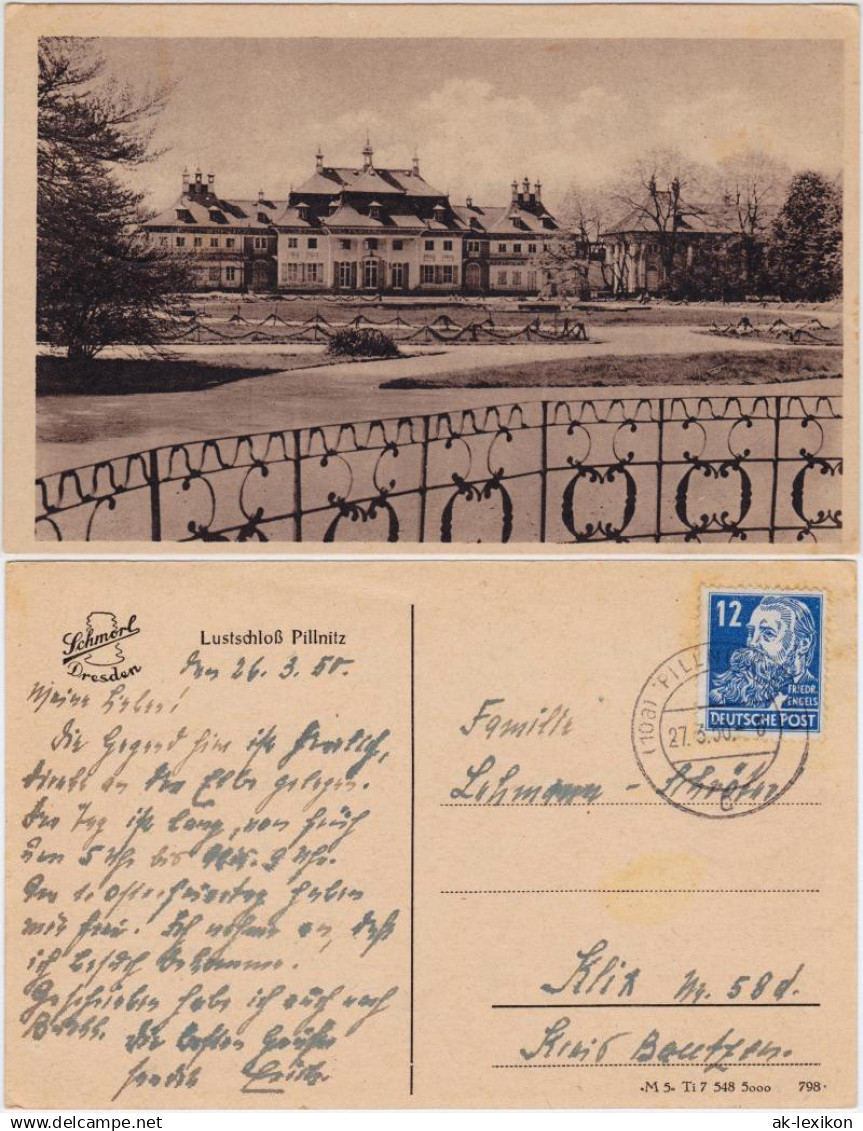 Schmorl
Dresden
Lustschloß Pillnitz
den 26. 3. 50.
Meine Lieben!
Die Gegend hier ist herrlich,
direkt an der Elbe gelegen.
Der Tag ist lang, von früh
um 5 Uhr bis 9 Uhr.
Den 1. Osterfeiertag haben
wir frei. Ich nehme an, daß
ich Besuch bekomme.
Geschrieben habe ich auch nach
Die besten Grüße
sendet
12
FRIEDR.
ENGELS
DEUTSCHE POST
(10a) PILLN
27.3.50.-8
Familie
Lehmann - Schröter
Klix Nr. 58d.
Kreis Bautzen.
•M 5• Ti 7 548 5000 798•
www.delcampe.net
ak-lexikon